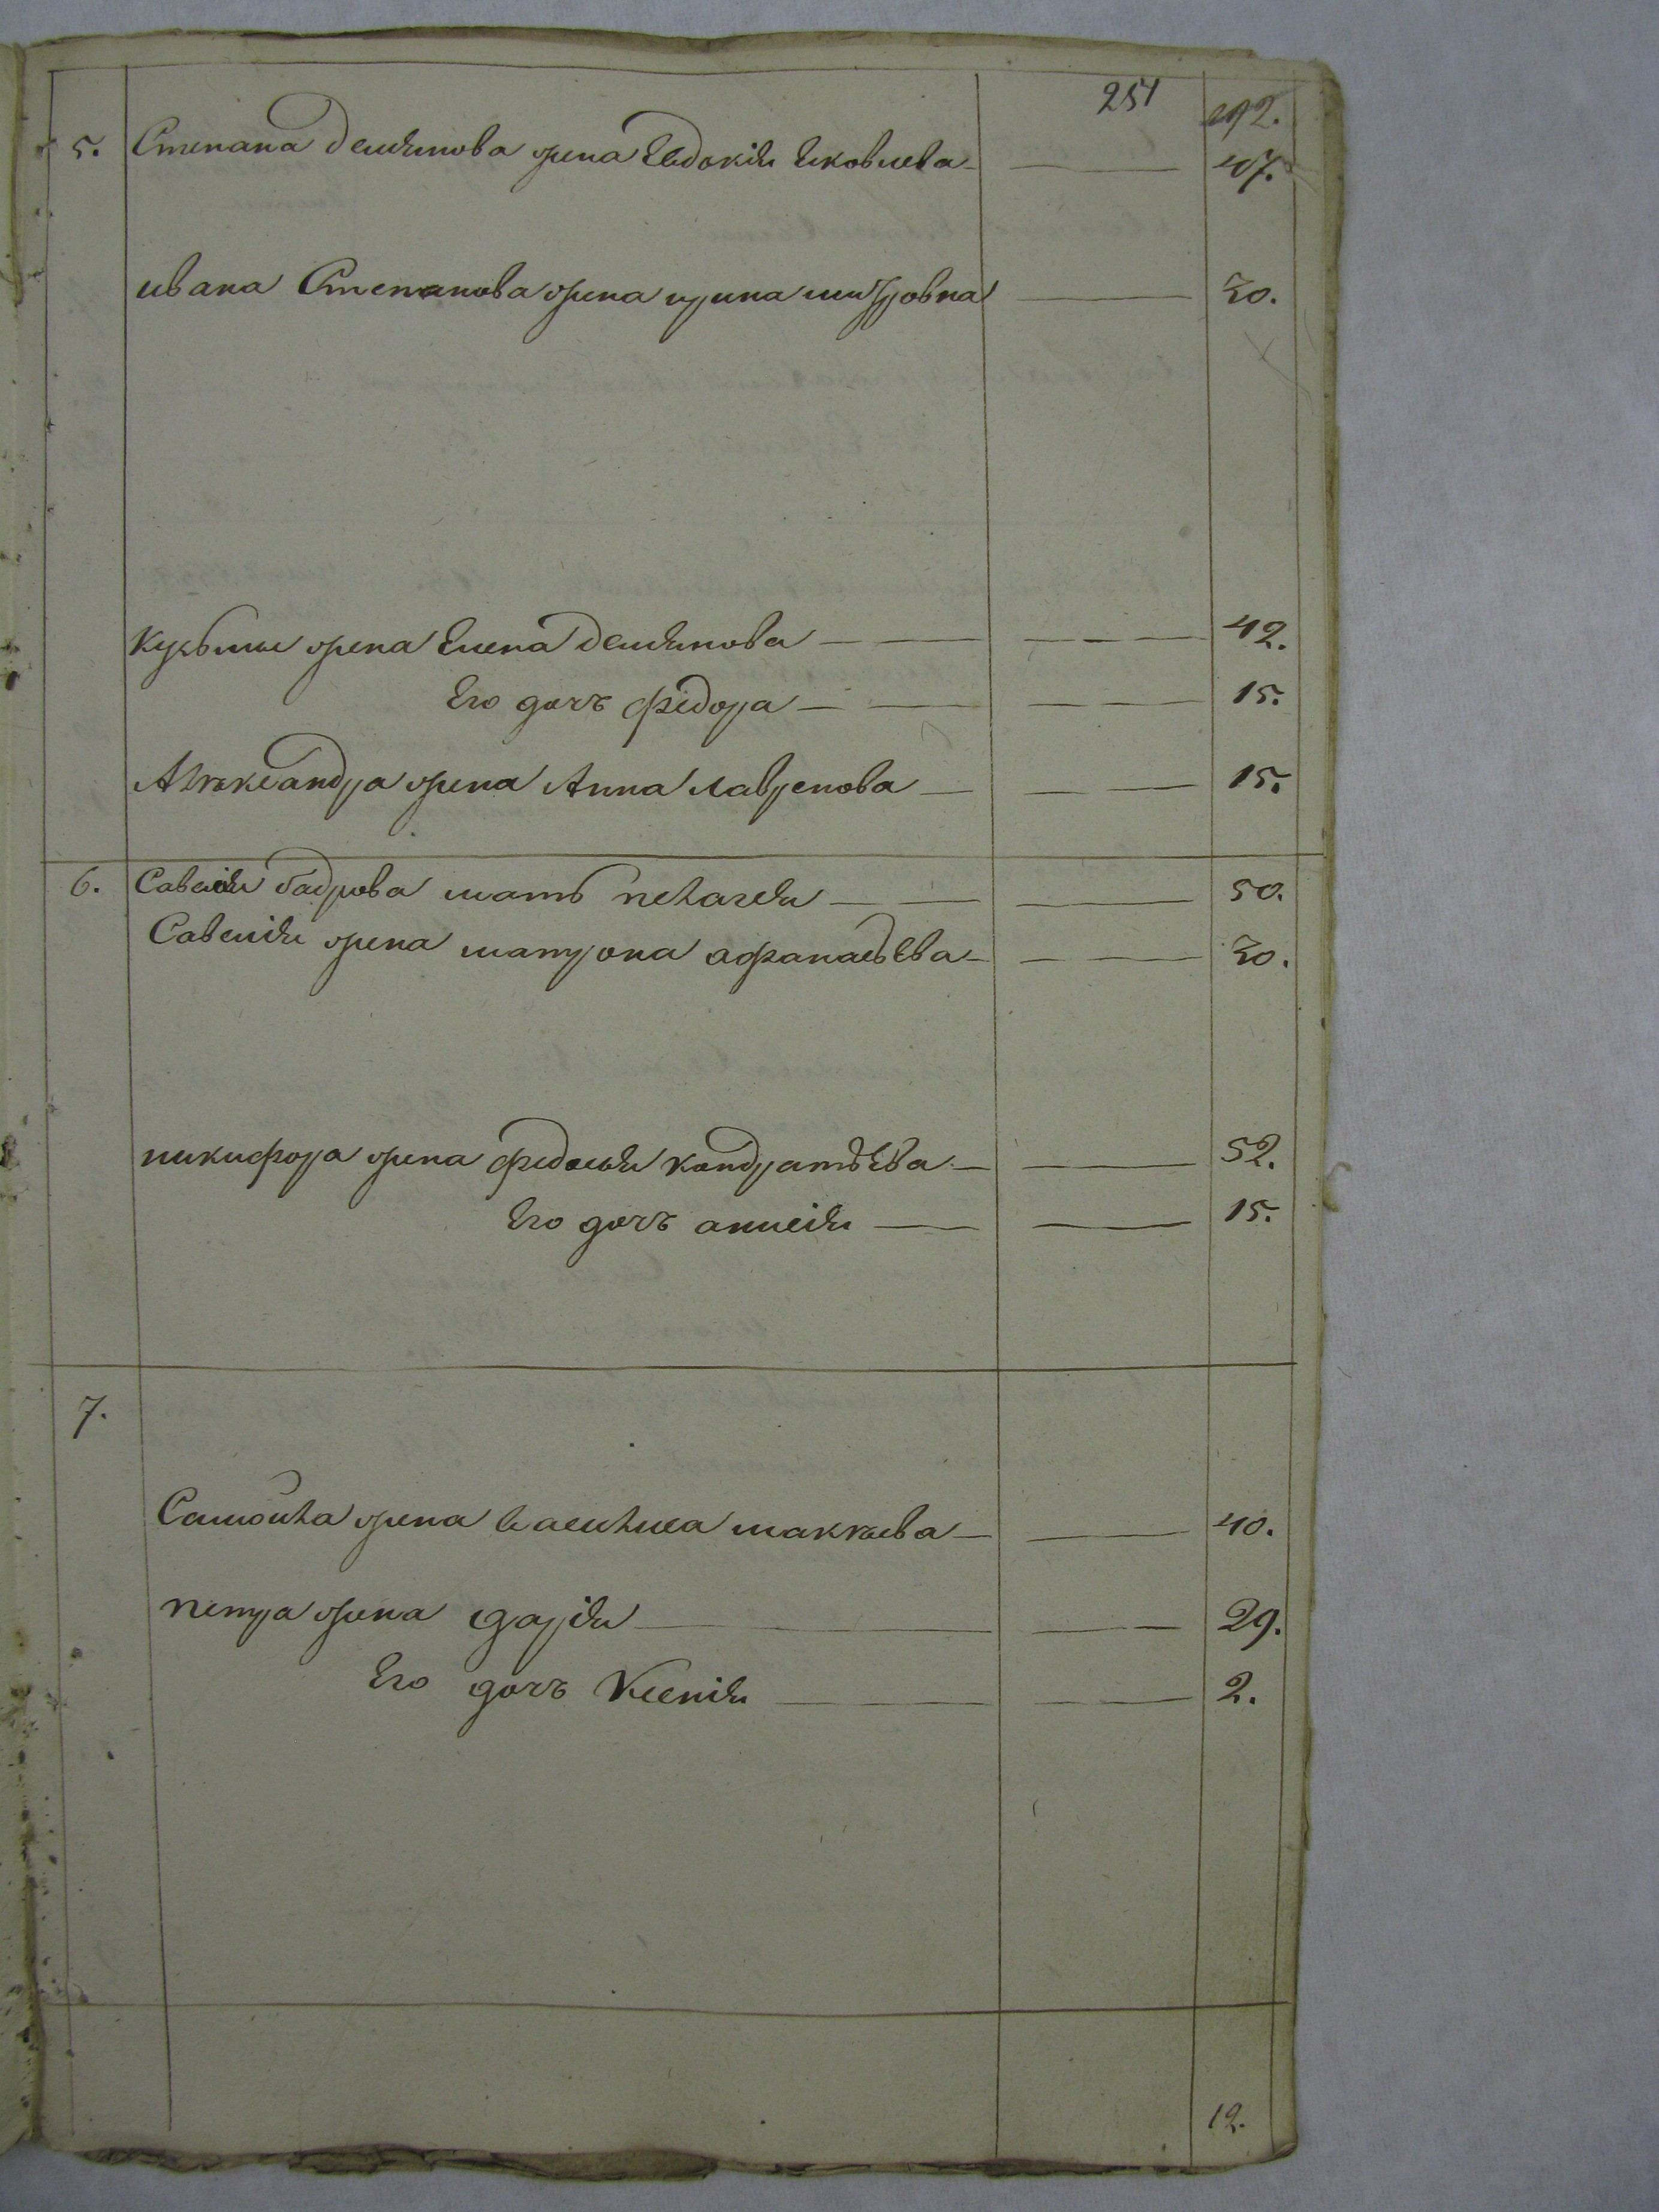 251
192.
5. Степана демянова жена Евдокія яковлева 47.
ивана Степанова жена ирина Петровна 30.
кузьмы жена Елена демянова 42.
Его дочь федора 15.
Александра жена Анна лавренова 15.
6. Савелія мать пелагея 50.
Савелія жена матрона афанасьева 30.
никифора жена федосья кондратьева 52.
Его дочь анисія 15.
7.
Самойла жена василиса макеева 40.
петра жена дарія 29.
Его дочь Ксенія 2.
12.